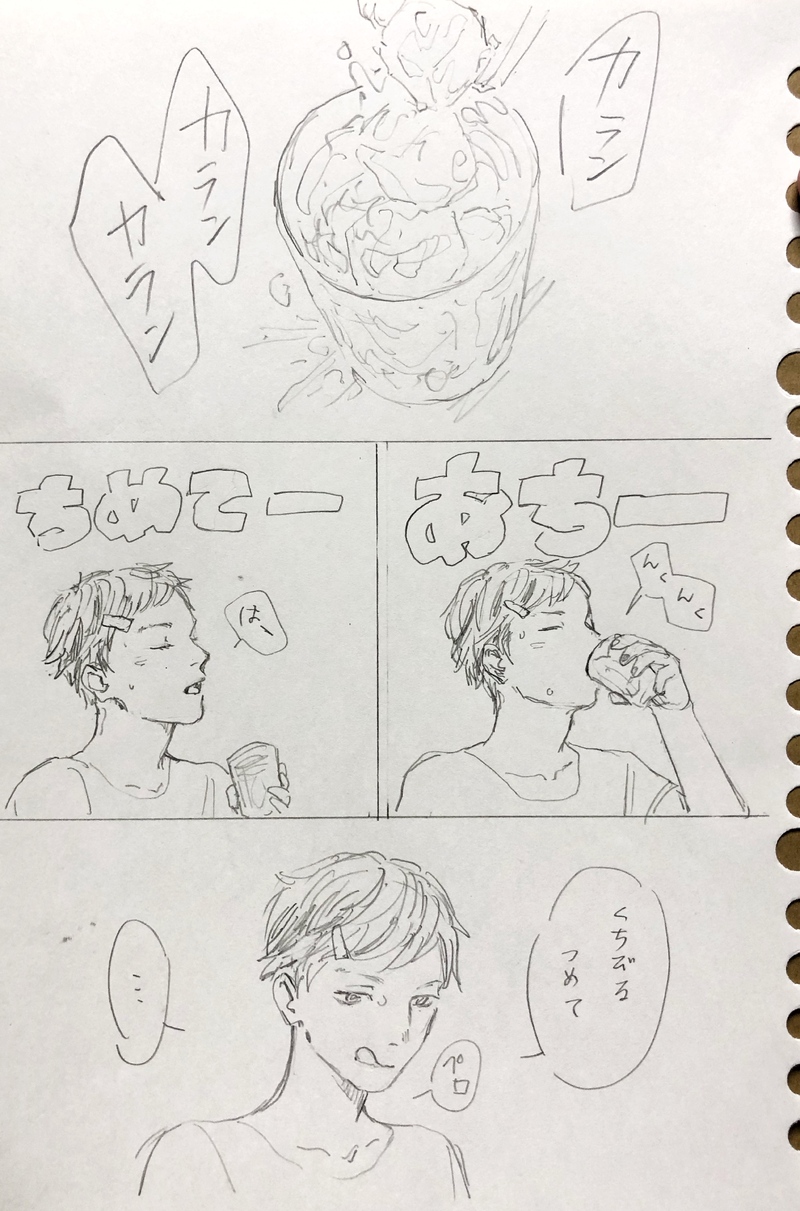 カラン
カラン
カラン
あちー
んく
んく
ちめてー
はー
くちびる
つめて
ペロ
…